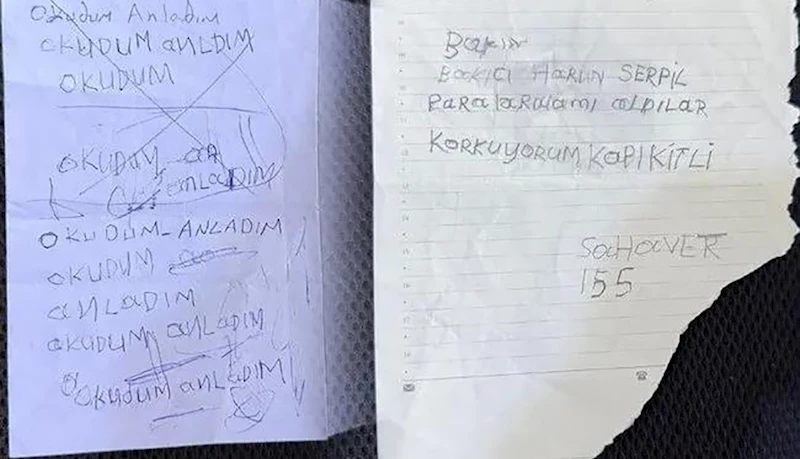 Okudum Anladım
OKUDUM anLDIM
OKUDUM
OKUDUM
anLADIM
OKUDUM-ANLADIM
OKUDUM
anLADIM
OKUDUM anLADIM
OKUDUM anLADIM
Bakın
BAKICI HARUN SERPİL
PARALARımamı aLDILAR
KORKUYORUM KAPI KİTLİ
SaHaVER
155